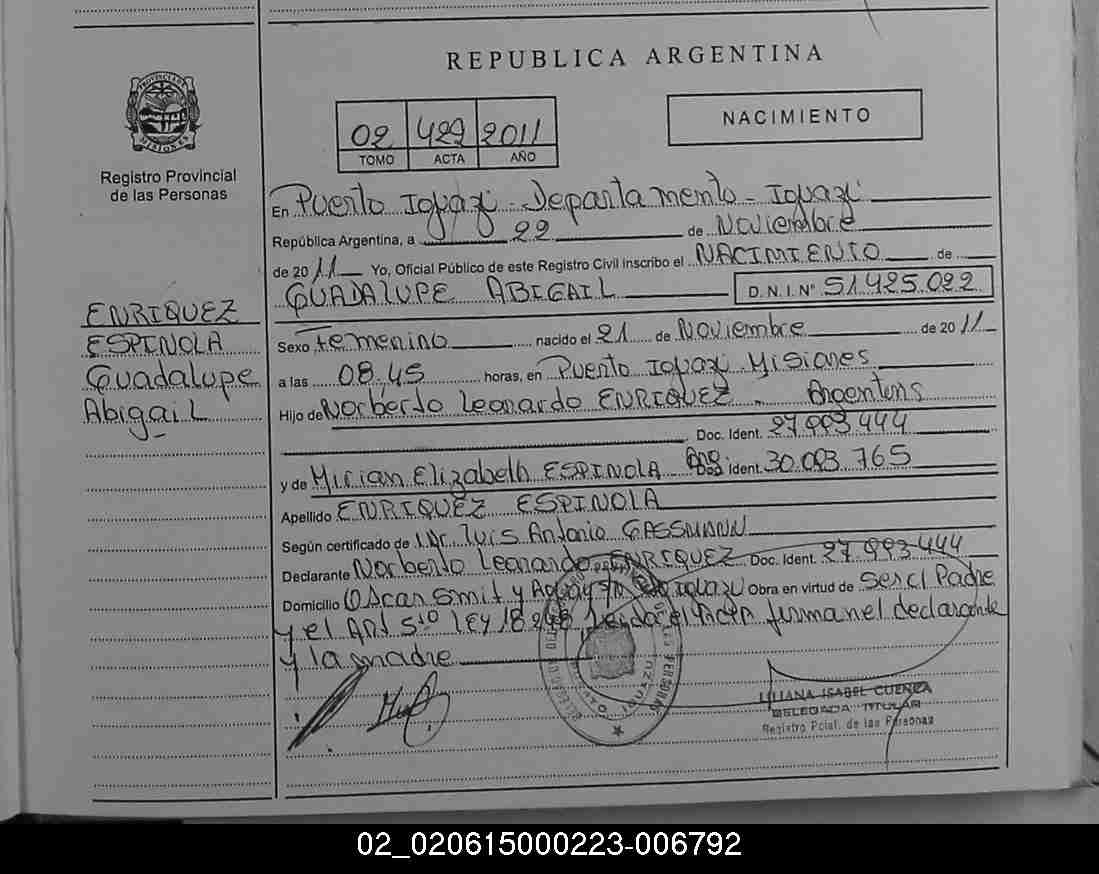 REPUBLICA ARGENTINA
PROVINCIA DE MISIONES
Registro Provincial
de las Personas
02 429 2011
TOMO ACTA AÑO
NACIMIENTO
ENRIQUEZ
ESPINOLA
Guadalupe
Abigail
En Puerto Iguazú - Departamento - Iguazú
República Argentina, a 22 de Noviembre
de 2011 Yo, Oficial Público de este Registro Civil inscribo el NACIMIENTO de
GUADALUPE ABIGAIL D.N.I. N° 51.425.022
Sexo Femenino nacido el 21 de Noviembre de 2011
a las 08,45 horas, en Puerto Iguazú Misiones
Hijo de Norberto Leonardo ENRIQUEZ - Argentina
Doc. Ident. 27.993.444
y de Mirian Elizabeth ESPINOLA Doc. Ident. 30.093.765
Apellido ENRIQUEZ ESPINOLA
Según certificado de Dr. Luis Antonio GASSMANN
Declarante Norberto Leonardo ENRIQUEZ Doc. Ident. 27.993.444
Domicilio Oscar Smit y Iguazú Obra en virtud de Ser el Padre
y el Art 5to LEY 18.248 Leida el Acta firman el declarante
y la madre
LILIANA ISABEL CUENCA
DELEGADA TITULAR
Registro Pcial. de las Personas
02_020615000223-006792